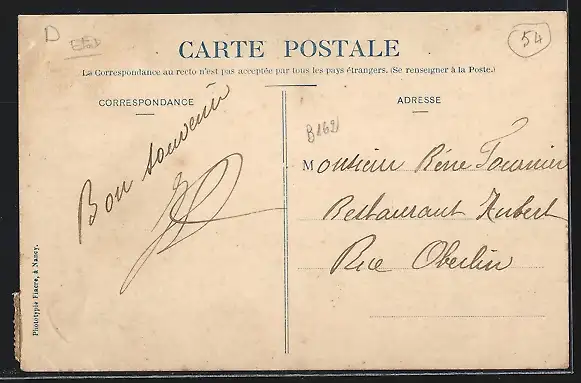 D
54
CARTE POSTALE
La Correspondance au recto n'est pas acceptée par tous les pays étrangers. (Se renseigner à la Poste.)
CORRESPONDANCE
ADRESSE
B162
Bon souvenir
Monsieur Réne Fournier
Restaurant Hubert
Rue Oberlin
Phototypie Fiacre, à Nancy.